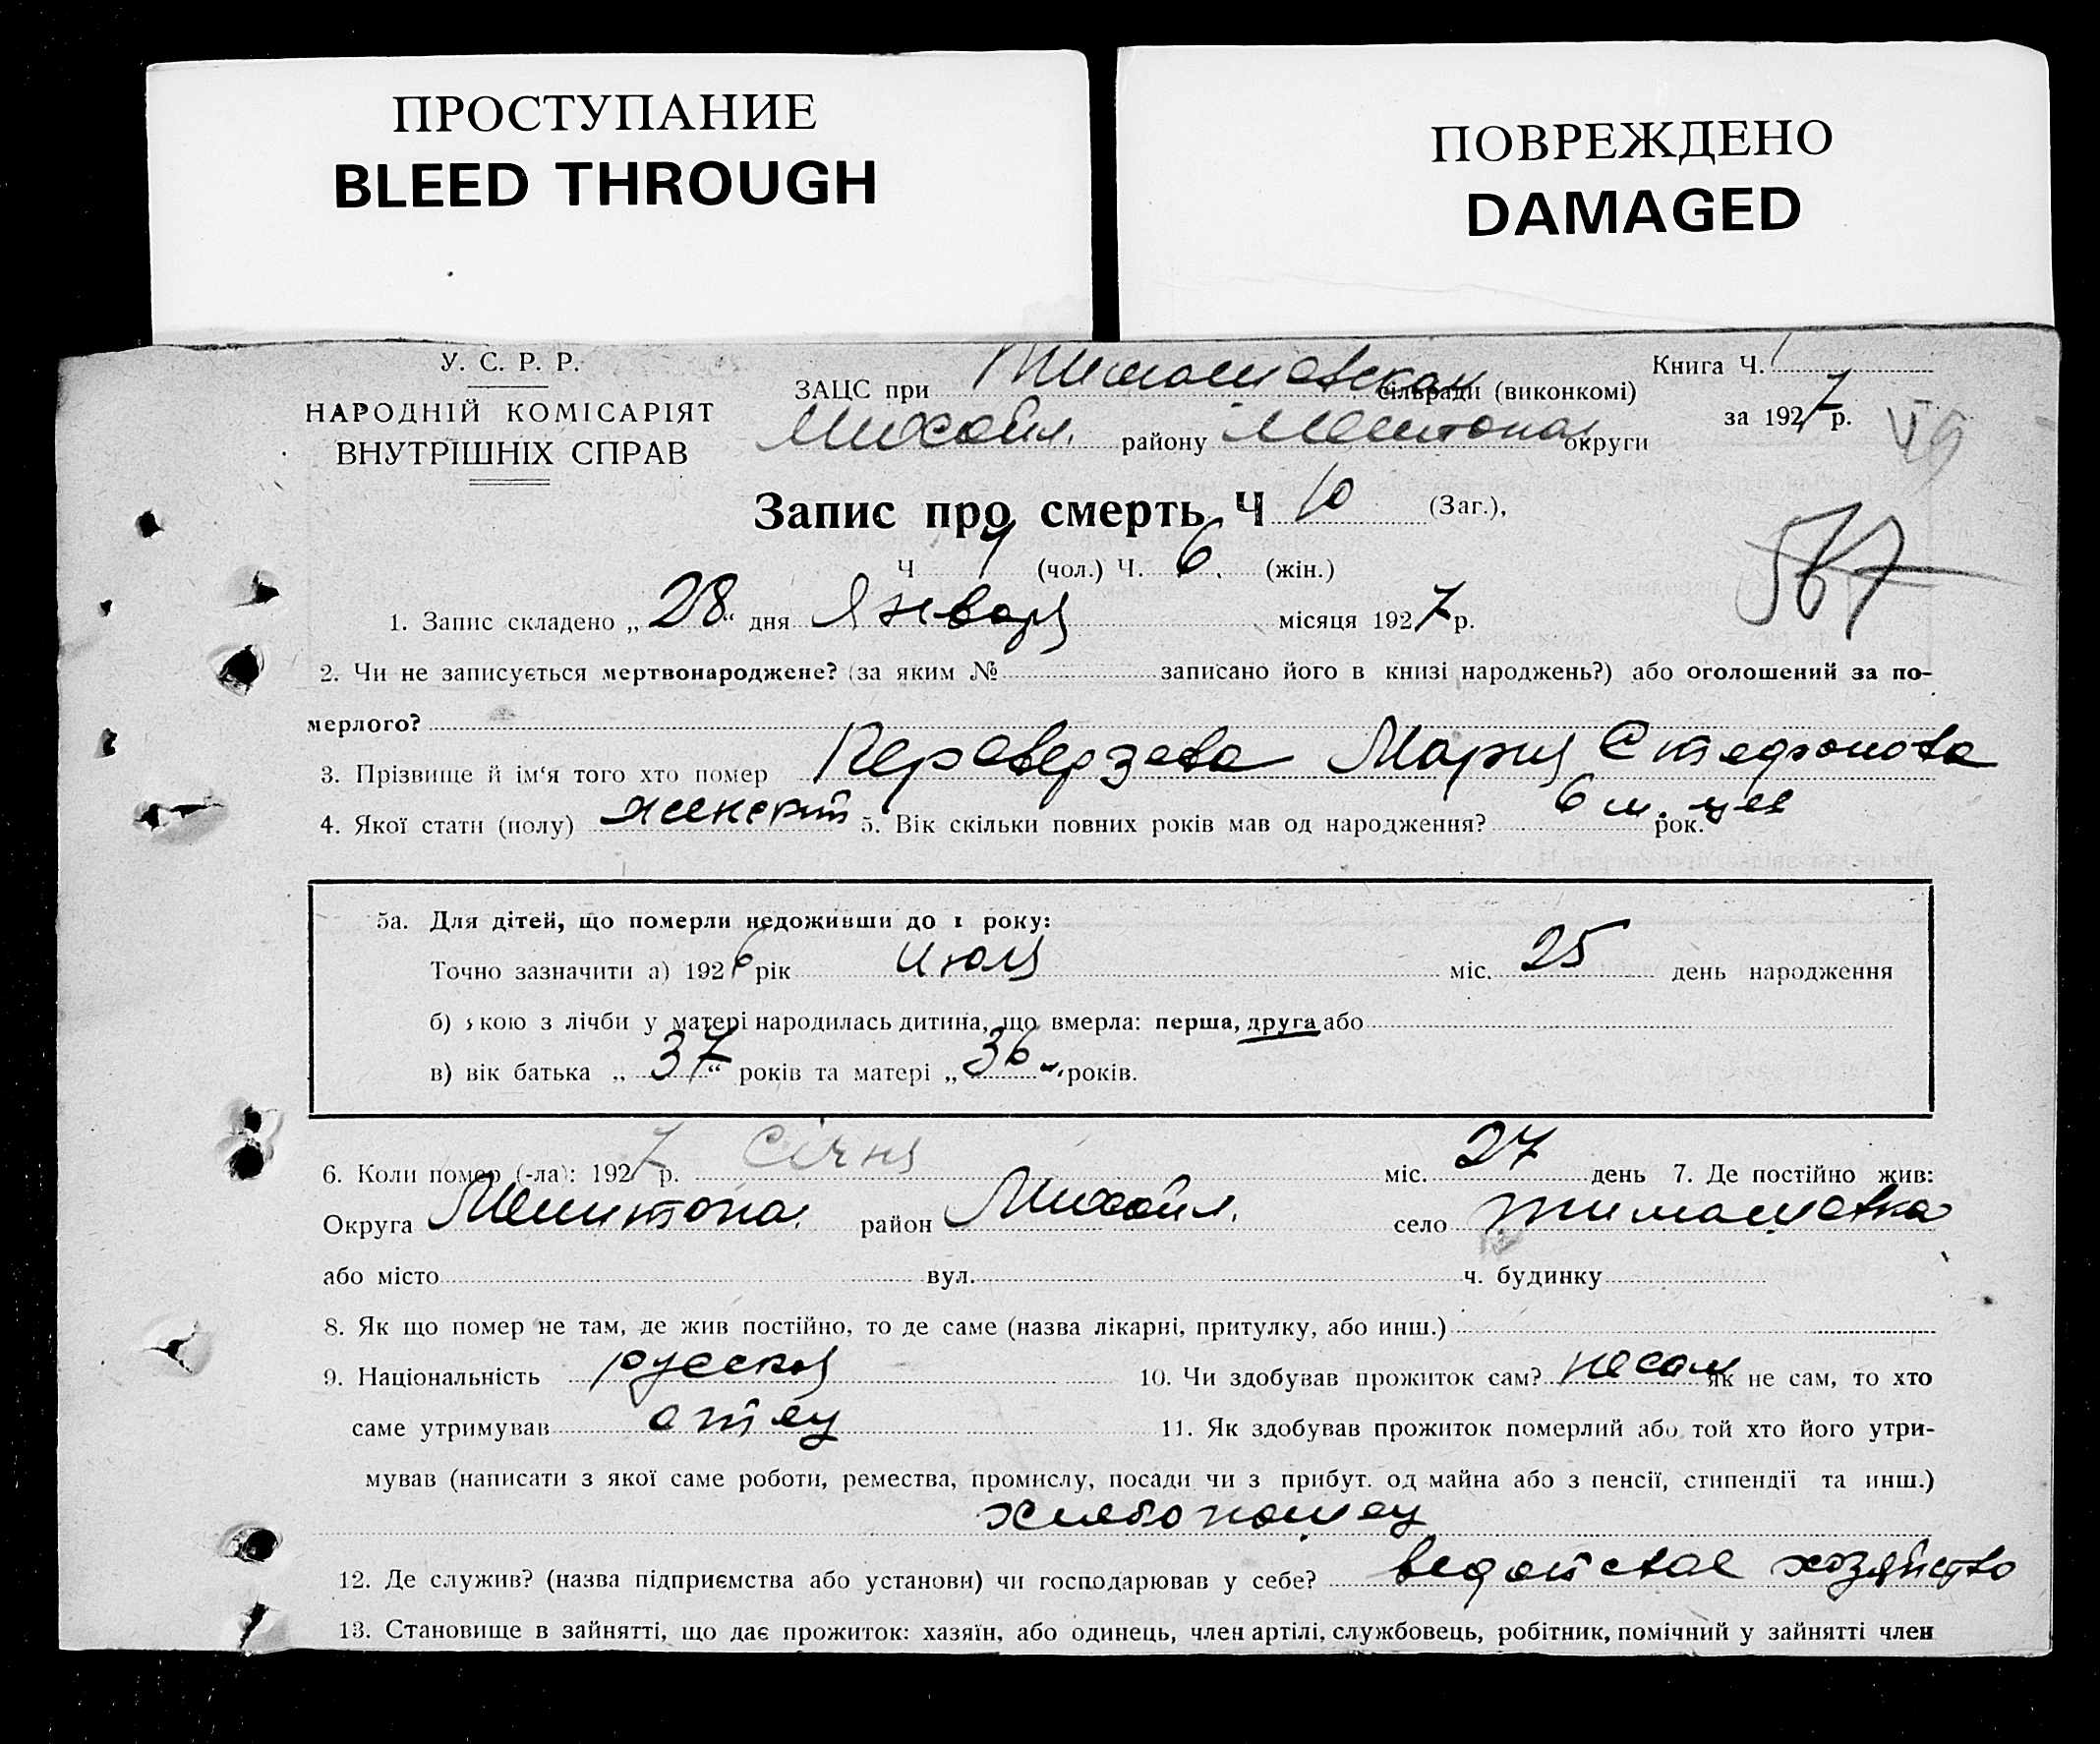 ПРОСТУПАНИЕ
BLEED THROUGH
ПОВРЕЖДЕНО
DAMAGED
У. С. Р. Р.
НАРОДНІЙ КОМІСАРІЯТ
ВНУТРІШНІХ СПРАВ
ЗАЦС при Тимошовском сільради (виконкомі)
Михайл. району Мелитопол округи
Книга Ч.
за 1927 р.
Запис про смерть Ч 10 (Заг.),
Ч 4 (чол.) Ч. 6. (жін.)
567
1. Запис складено „28“ дня Января місяця 1927 р.
2. Чи не записується мертвонароджене? (за яким № записано його в книзі народжень?) або оголошений за по-
мерлого?
3. Прізвище й ім'я того хто помер Переверзева Мария Стефанова
4. Якої стати (полу) женск 5. Вік скільки повних років мав од народження? 6 м. цев рок.
5а. Для дітей, що померли недоживши до 1 року:
Точно зазначити а) 1926 рік июля міс. 25 день народження
б) якою з лічби у матері народилась дитина, що вмерла: перша, друга або
в) вік батька „37“ років та матері „36“ років.
6. Коли помер (-ла): 1927 р. Січня міс. 27 день 7. Де постійно жив:
Округа Мелитопол. район Михайл. село Тимашовка
або місто вул. ч. будинку
8. Як що помер не там, де жив постійно, то де саме (назва лікарні, притулку, або инш.)
9. Національність русская 10. Чи здобував прожиток сам? не сам як не сам, то хто
саме утримував отец 11. Як здобував прожиток померлий або той хто його утри-
мував (написати з якої саме роботи, ремества, промислу, посади чи з прибут. од майна або з пенсії, стипендії та инш.)
хлебопашец
12. Де служив? (назва підприємства або установи) чи господарював у себе? ведет свое хозяйство
13. Становище в зайнятті, що дає прожиток: хазяїн, або одинець, член артілі, службовець, робітник, помічний у зайнятті член